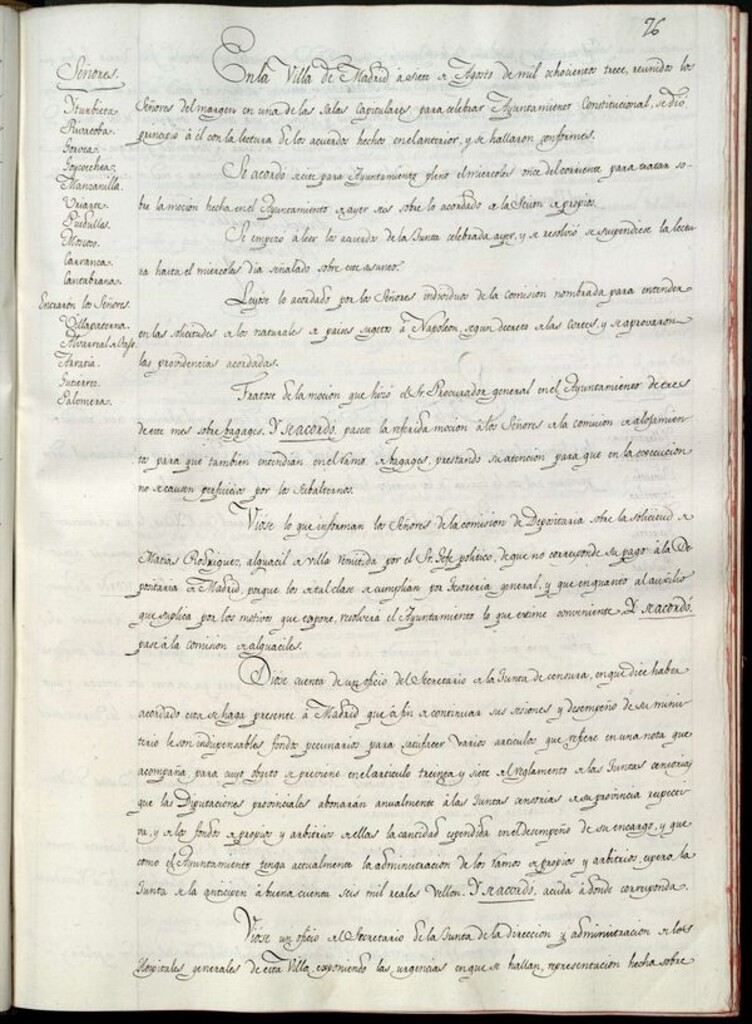 76
Señores.
Yturbieta.
Rivacoba.
Gorvea.
Goycoechea.
Manzanilla.
Uriarte.
Piedullas.
Moscoso.
Carranca.
Cantabrana.
Entraron los Señores.
Villapaterna.
Arratia.
Gutierrez.
Palomera.
En la Villa de Madrid a siete de Agosto de mil ochocientos trece, reunidos los
Señores del margen en una de las Salas Capitulares para celebrar Ayuntamiento Constitucional, se dio
principio á él con la lectura de los acuerdos hechos en el anterior, y se hallaron conformes.
Se acordó se cite para Ayuntamiento pleno el miercoles once del corriente para tratar so-
bre la mocion hecha en el Ayuntamiento de ayer seis sobre lo acordado de la Seccion de propios.
Se empezó á leer los acuerdos de la Junta celebrada ayer, y se resolvió se suspendiese la lectu-
ra hasta el miercoles dia señalado sobre este asunto.
Leyose lo acordado por los Señores individuos de la comision nombrada para entender
en las solicitudes de los naturales de paises sugetos á Napoleon, segun decreto de las Cortes, y se aprovaron
las providencias acordadas.
Tratose de la mocion que hizo el Sr. Procurador general en el Ayuntamiento de tres
de este mes sobre bagages. Y se acordó, pasese la referida mocion á los Señores de la comision de alojamien-
to para que tambien entiendan en el ramo de bagages, prestando su atencion para que en la execucion
no se causen perjuicios por los subalternos.
Viose lo que informan los Señores de la comision de Depositaria sobre la solicitud de
Matias Rodriguez, alguacil de villa remitida por el Sr. Jefe politico, de que no corresponde su pago á la De-
positaria de Madrid, porque los de tal clase se cumplian por Tesoreria general, y que en quanto al auxilio
que suplica por los motivos que expone, resolverá el Ayuntamiento lo que estime conveniente. Y se acordó,
pase á la comision de alguaciles.
Diose cuenta de un oficio del Secretario de la Junta de censura, en que dice haber
acordado esta se haga presente á Madrid que á fin de continuar sus sesiones y desempeño de su minis-
terio le son indispensables fondos pecuniarios para satisfacer varios articulos que refiere en una nota que
acompaña, para cuyo objeto se previene en el articulo treinta y siete del reglamento de las Juntas censorias
que las Diputaciones provinciales abonarán anualmente á las Juntas censorias de su provincia respecti-
va, y de los fondos de propios y arbitrios de ellas la cantidad expendida en el desempeño de su encargo, y que
como el Ayuntamiento tenga actualmente la administracion de los ramos de propios y arbitrios, espera la
Junta se la anticipen á buena cuenta seis mil reales vellon. Y se acordó, acuda á donde corresponda.
Viose un oficio del Secretario de la Junta de la direccion y administracion de los
Hospitales generales de esta Villa, exponiendo las urgencias en que se hallan, representacion hecha sobre